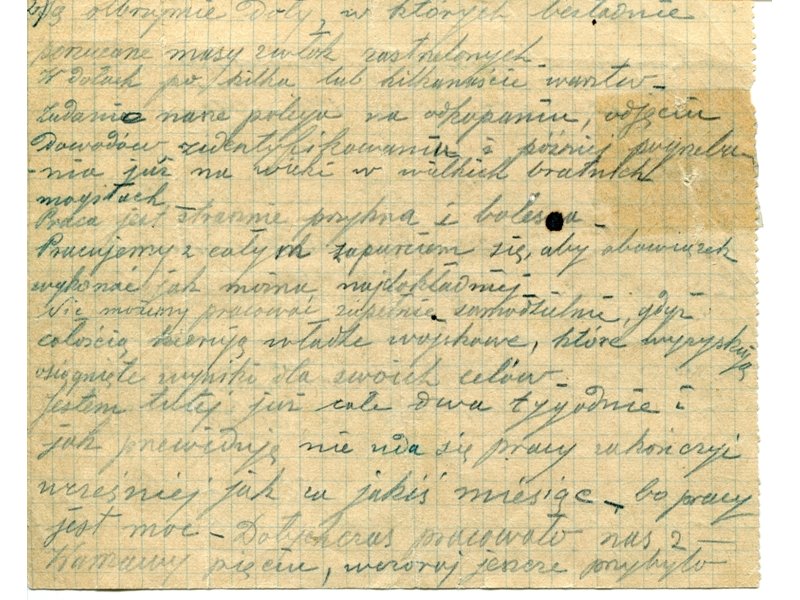 są olbrzymie Doły, w których bezładnie
porzucane masy zwłok rozstrzelonych
W dołach po kilka lub kilkanaście warstw –
Zadanie nasze polega na odkopaniu, odjęciu
Dowodów zidentyfikowaniu i później pogrzeba-
-niu już na wieki w wielkich bratnich
mogiłach
Praca jest strasznie przykra i bolesna –
Pracujemy z całym zaparciem się, aby obowiązek
wykonać jak można najdokładniej
Nie możemy pracować zupełnie samodzielnie, gdyż
całością kierują władze wojskowe, które wyzyskują
osiągnięte wyniki dla swoich celów
Jestem tutej już całe dwa tygodnie i
jak przewiduję nie uda się pracy zakończyć
wcześniej jak za jakiś miesiąc – bo pracy
jest moc – Dotychczas pracowało nas z –
Warszawy pięciu, wczoraj jeszcze przybyło